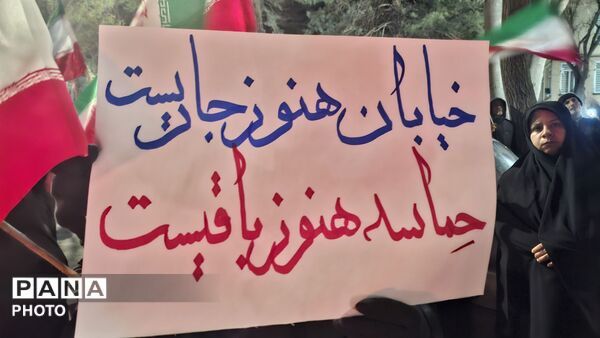 خیابان هنوز جاریست
حماسه هنوز باقیست
PANA
PHOTO